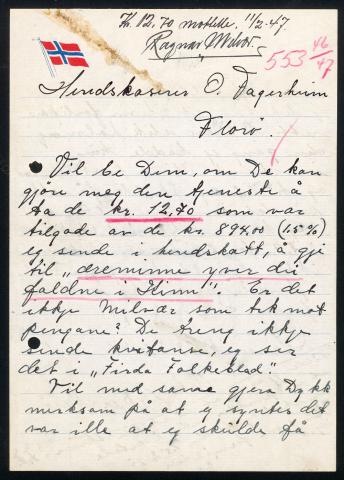 Kr. 12,70 mottatt. 11/2-47.
Ragnar
553 46/47
Herdskasserer O. Fagerheim
Florø.
Vil be Dem, om De kan
gjöre meg den tjeneste å
ta de kr. 12,70 som var
tilgode av de kr. 894,00 (1.5%)
eg sende i herdskatt, å gje
til „æreminne yver dei
faldne i Kinn". Er det
ikkje Milvær som tek mot
pengane? De treng ikkje
sende kvitanse, eg ser
det i „Firda Folkeblad".
Vil med same gjera Dykk
merksam på at eg syntes det
var ille at eg skulde få